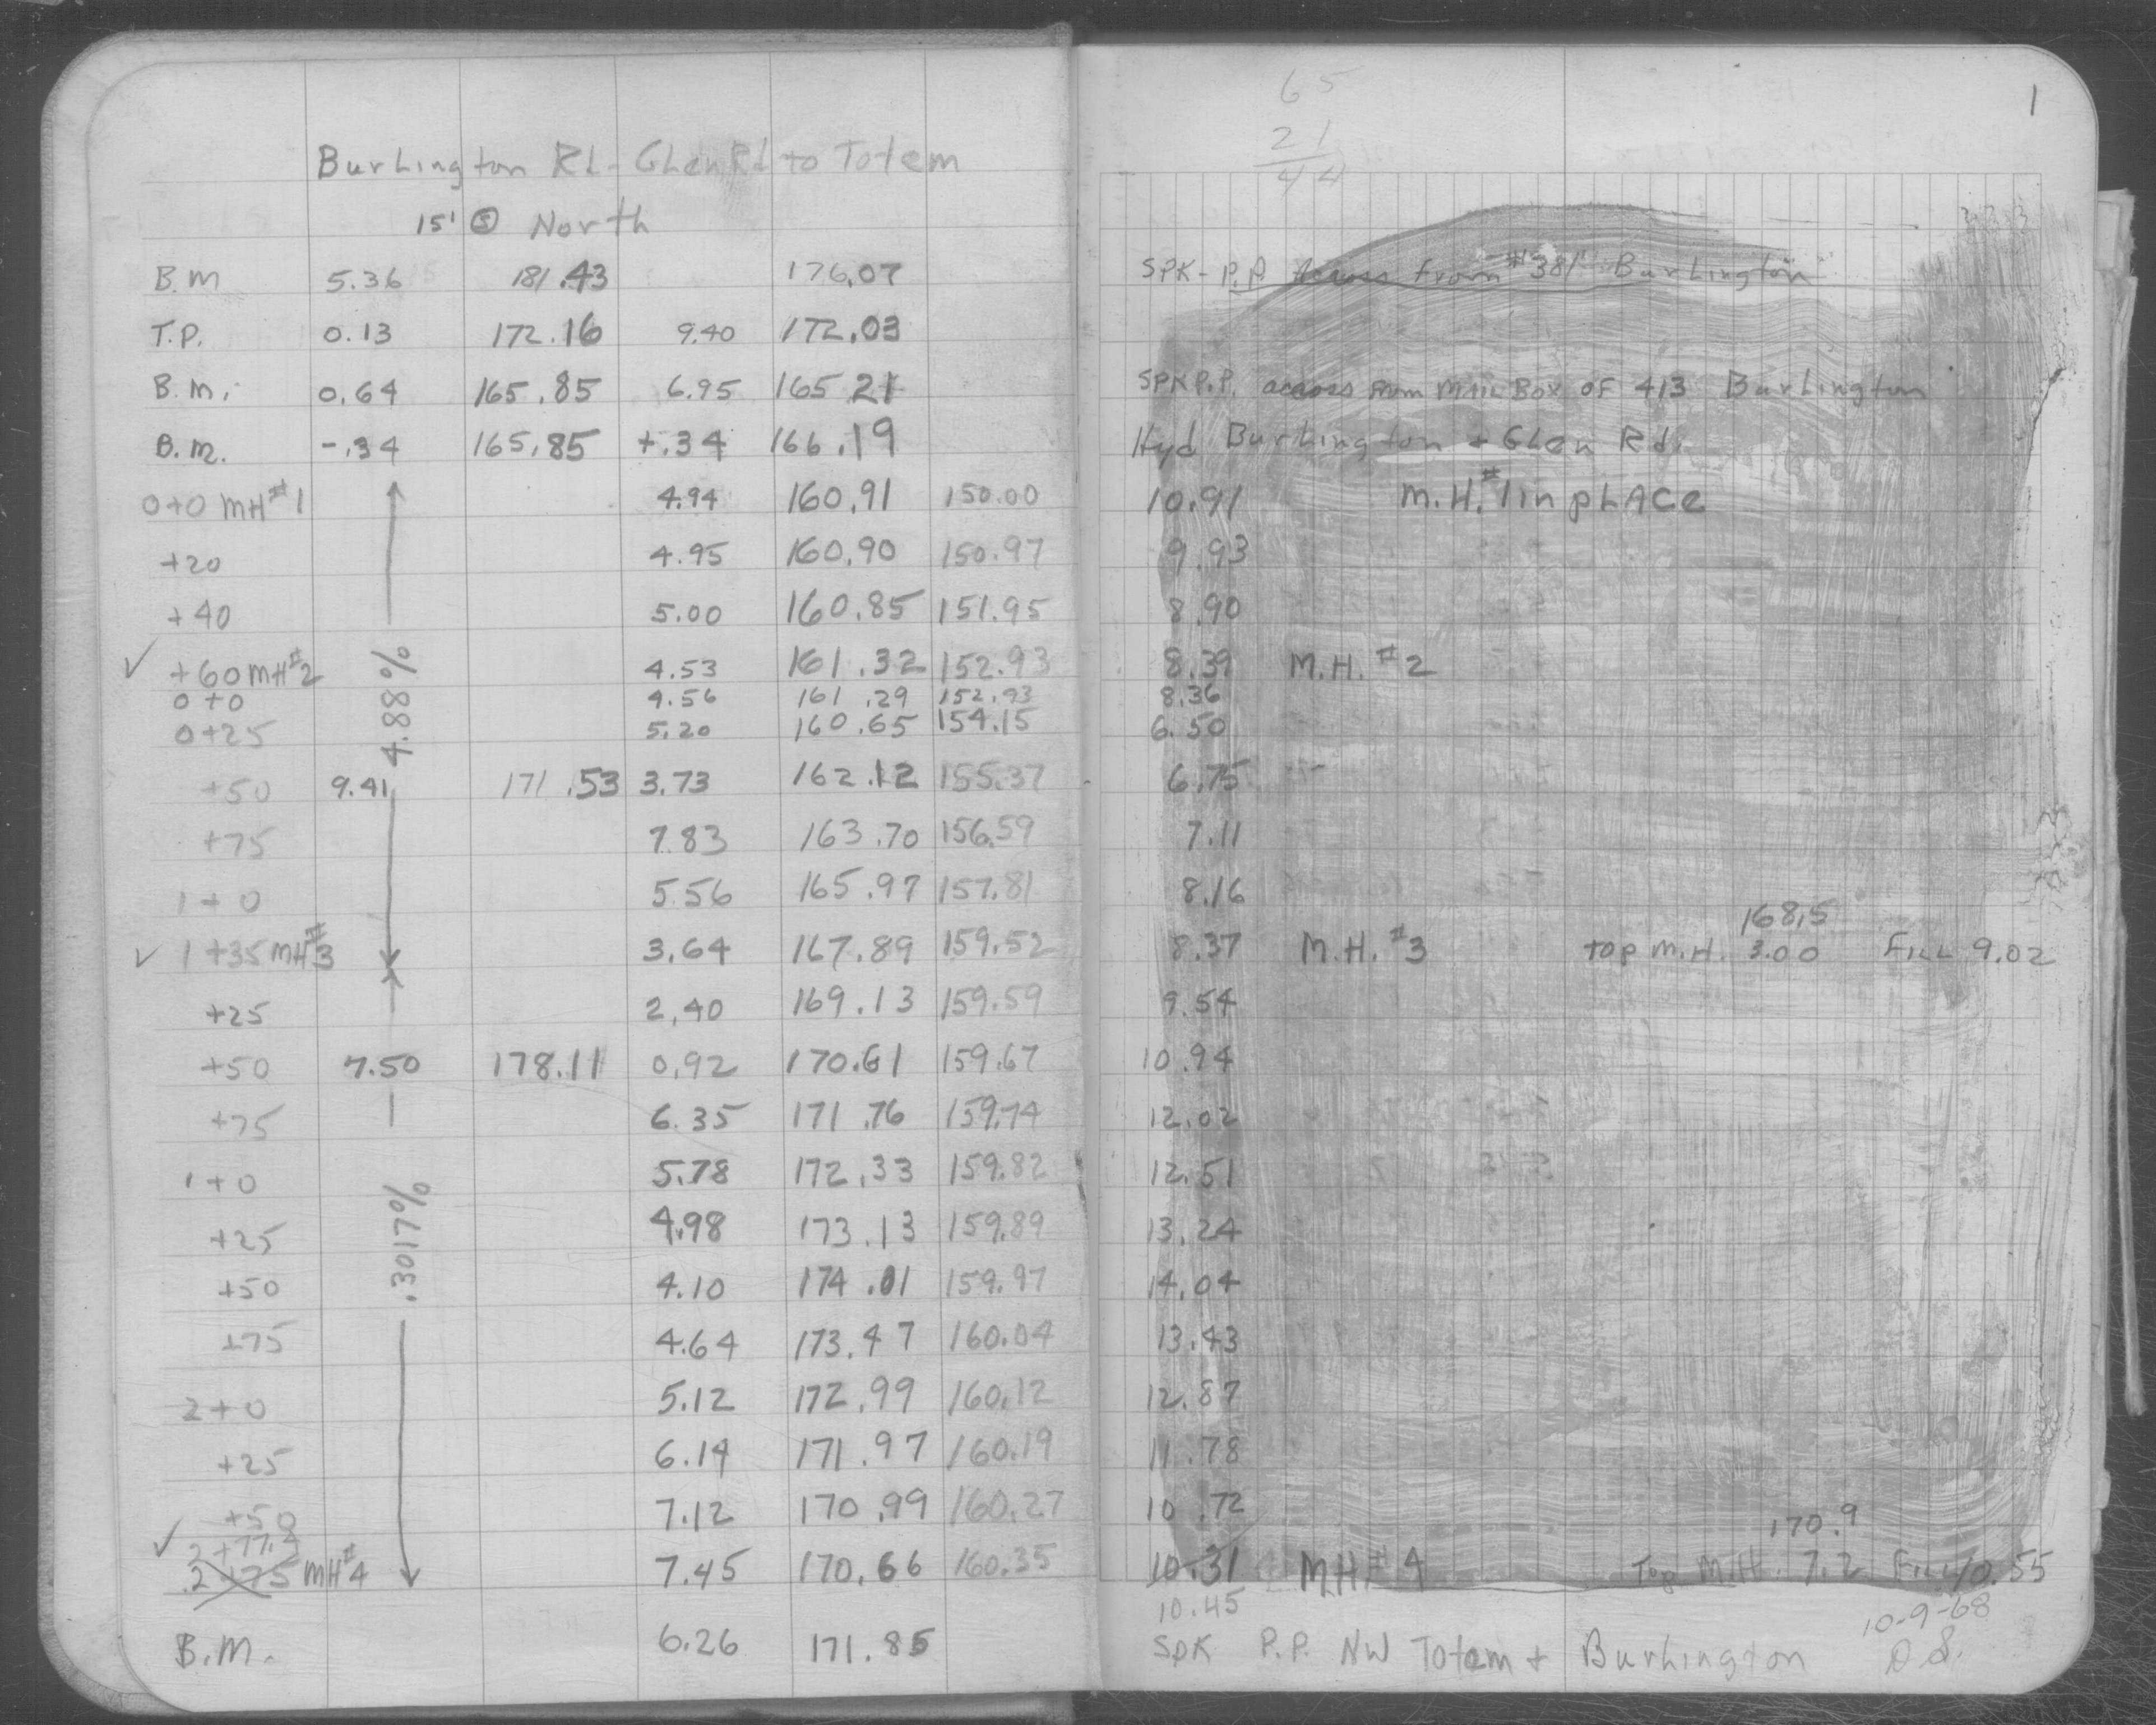 65
21
44
1
Burlington Rd - Glen Rd to Totem
15' Ⓢ North
B.M 5.36 181.43 176.07 SPK - P.P. Across from #381 Burlington
T.P. 0.13 172.16 9.40 172.03
B.M. 0.64 165.85 6.95 165 21 SPK P.P. across from Mail Box OF 413 Burlington
B.M. -.34 165.85 +.34 166.19 Hyd Burlington + Glen Rd.
0+0 MH#1 4.94 160.91 150.00 10.91 M.H.#1 in pLACe
+20 4.95 160.90 150.97 9.93
+40 5.00 160.85 151.95 8.90
✓ +60 MH#2 4.53 161.32 152.93 8.39 M.H. #2
4.88%
0+0 4.56 161.29 152.93 8.36
0+25 5.20 160.65 154.15 6.50
+50 9.41 171.53 3.73 162.12 155.37 6.75
+75 7.83 163.70 156.59 7.11
1+0 5.56 165.97 157.81 8.16
168.5
✓ 1+35 MH#3 3.64 167.89 159.52 8.37 M.H. #3 top M.H. 3.00 Fill 9.02
+25 2.40 169.13 159.59 9.54
+50 7.50 178.11 0.92 170.61 159.67 10.94
+75 6.35 171.76 159.74 12.02
1+0 5.78 172.33 159.82 12.51
.3017%
+25 4.98 173.13 159.89 13.24
+50 4.10 174.01 159.97 14.04
+75 4.64 173.47 160.04 13.43
2+0 5.12 172.99 160.12 12.87
+25 6.14 171.97 160.19 11.78
+50 7.12 170.99 160.27 10.72
170.9
✓ 2+77.2
2+75 MH#4 7.45 170.66 160.35 10.31 MH#4 Top M.H. 7.2 Fill 10.55
10.45 10-9-68
B.M. 6.26 171.85 SPK P.P. NW Totem + Burlington D.S.